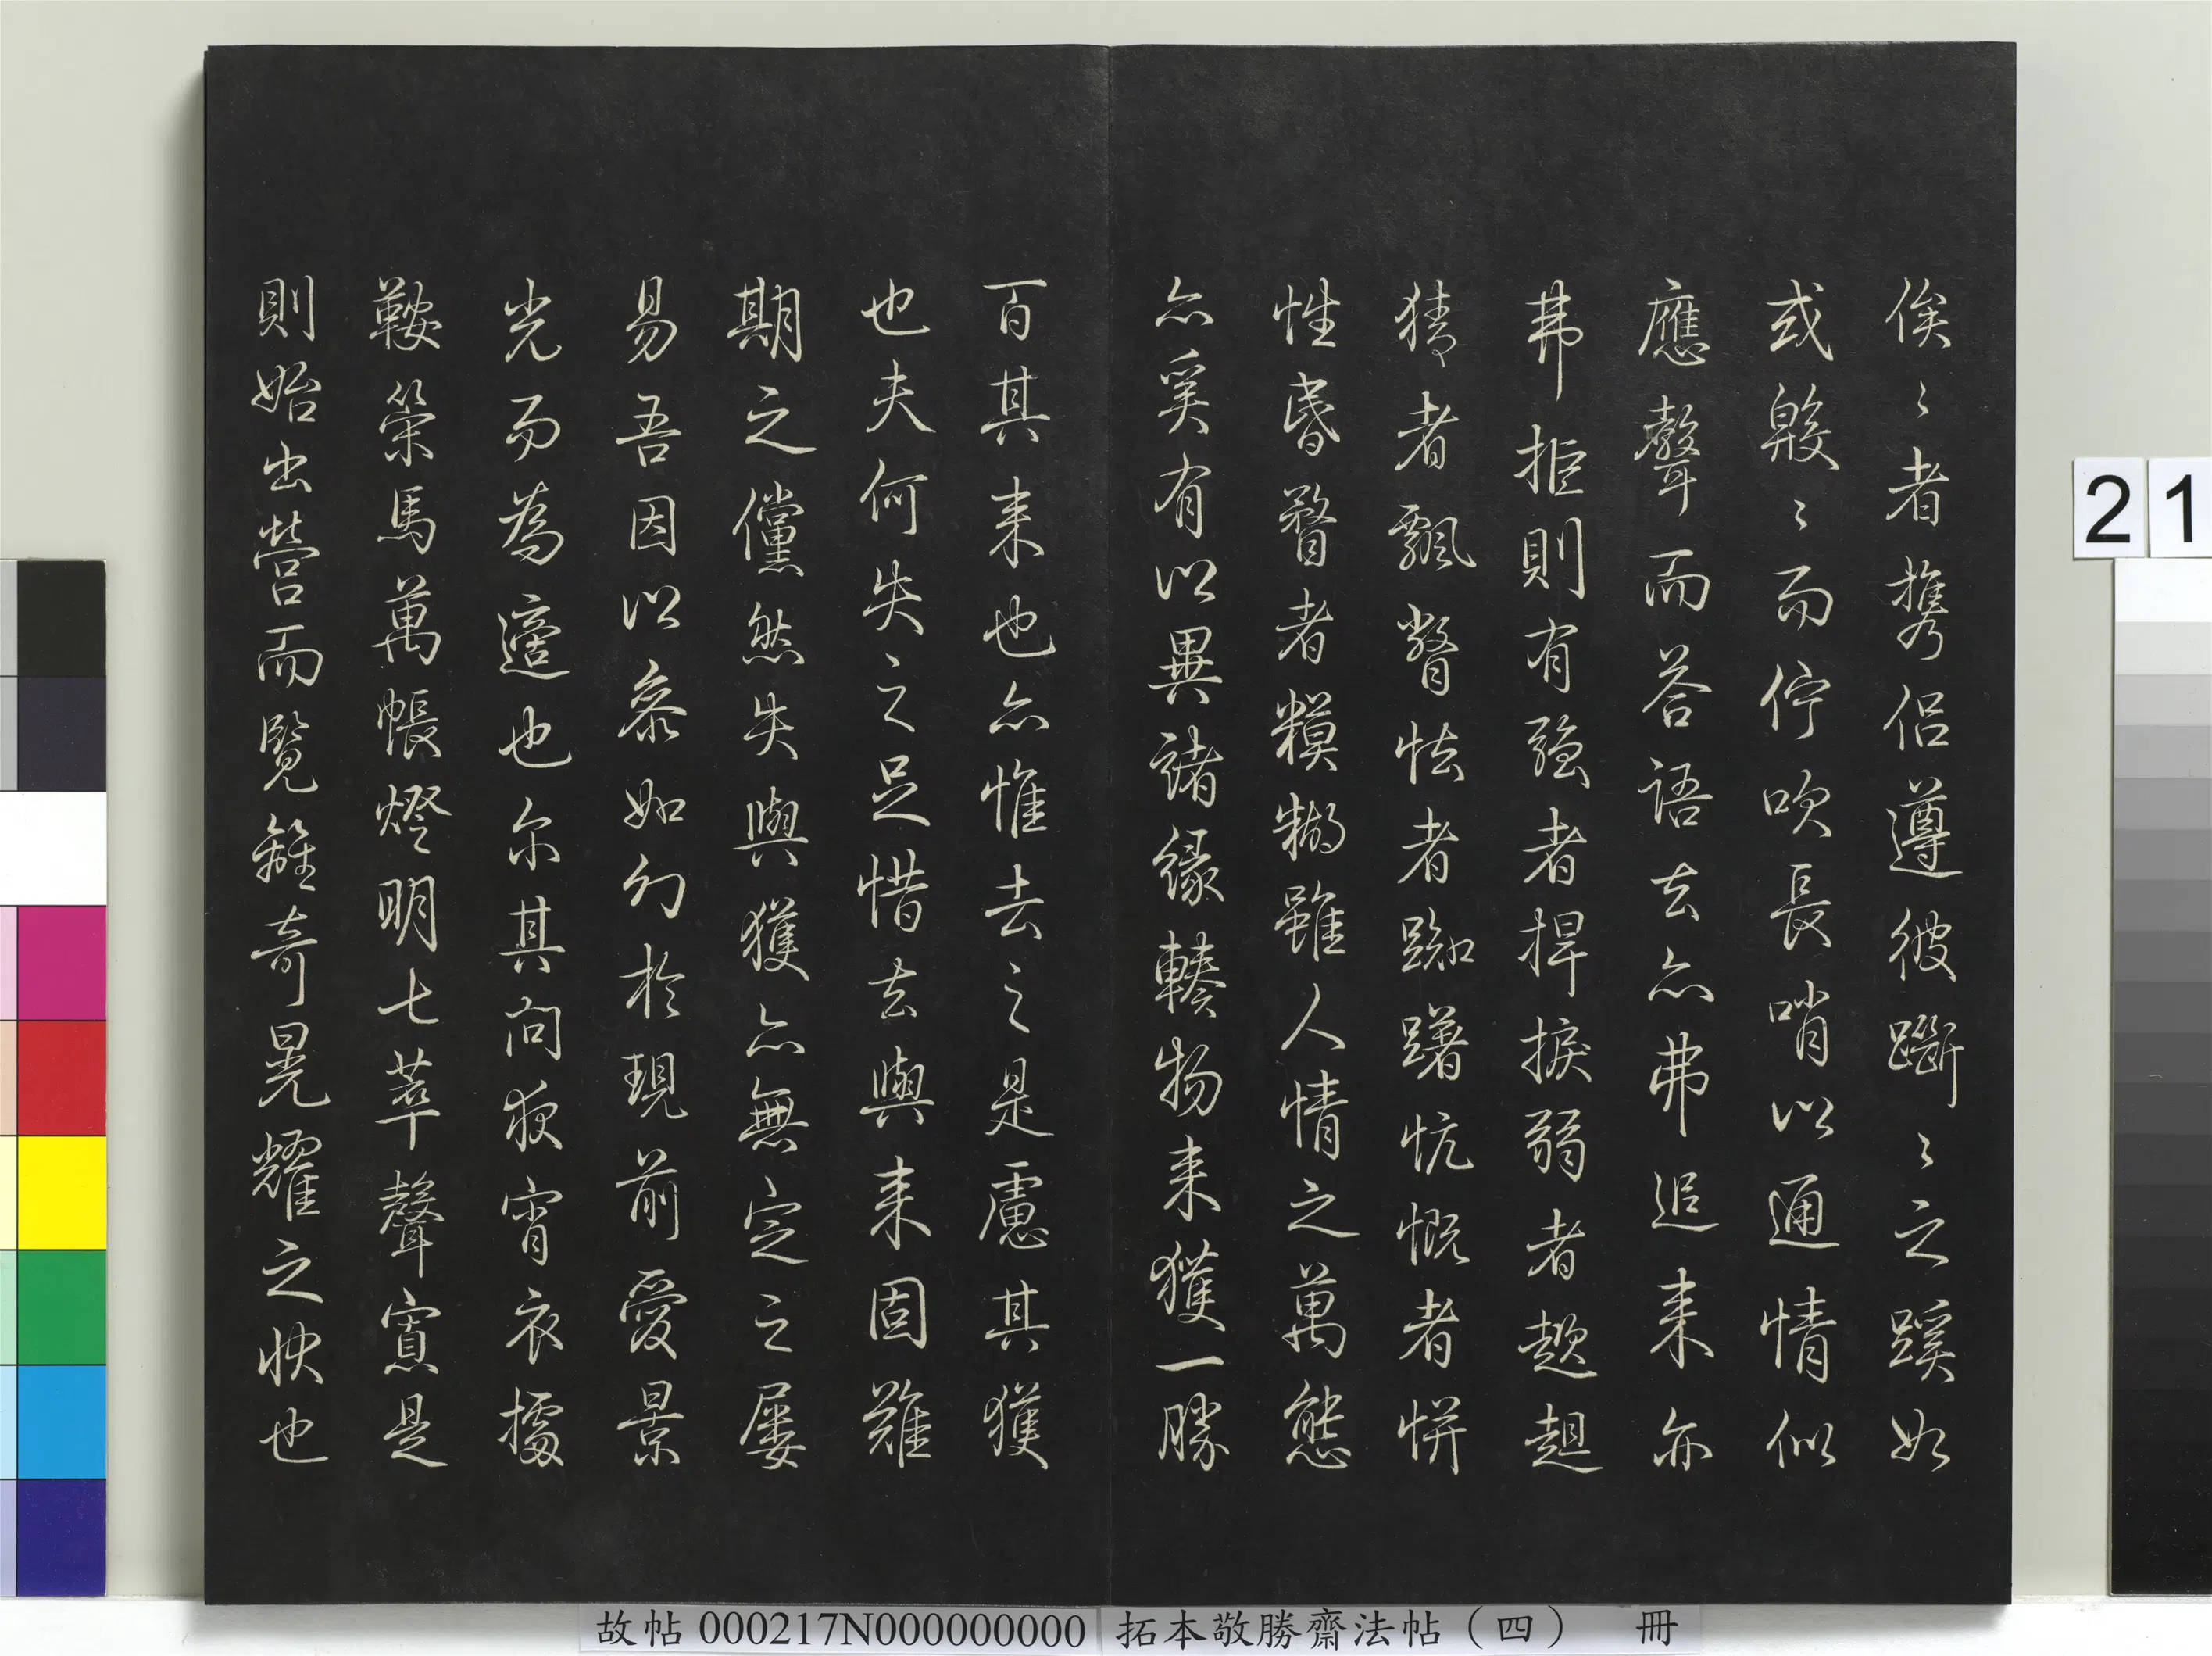 俟〻者攜侶遵彼𨇨〻之蹊如
或㿪〻而佇吹長哨以通情似
應聲而答語去亦弗追来亦
弗拒則有强者捍捩弱者趑趄
猜者飄瞥怯者踟躇忼慨者恲
性昏瞀者糢糊雖人情之萬態
亦奚有以異諸緣轃物来獲一勝
百其来也亦惟去之是慮其獲
也夫何失之足惜去與来固難
期之儻然失與獲亦無定之屡
易吾因以泰如幻於現前愛景
光而為適也尔其向夜宵衣據
鞍策馬萬帳燈明七萃聲寘是
則始出營而覽離奇晃耀之快也
21
故帖000217N000000000 拓本敬勝齋法帖（四） 冊